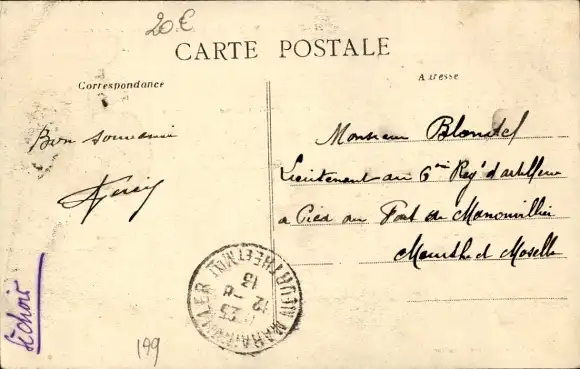 20 €
CARTE POSTALE
Correspondance
Adresse
Bon souvenir
Monsieur Blondel
Lieutenant au 6ème Regt d'artillerie
a Pied au Fort de Manonviller
Meurthe et Moselle
12 -4
13
séchoir
199